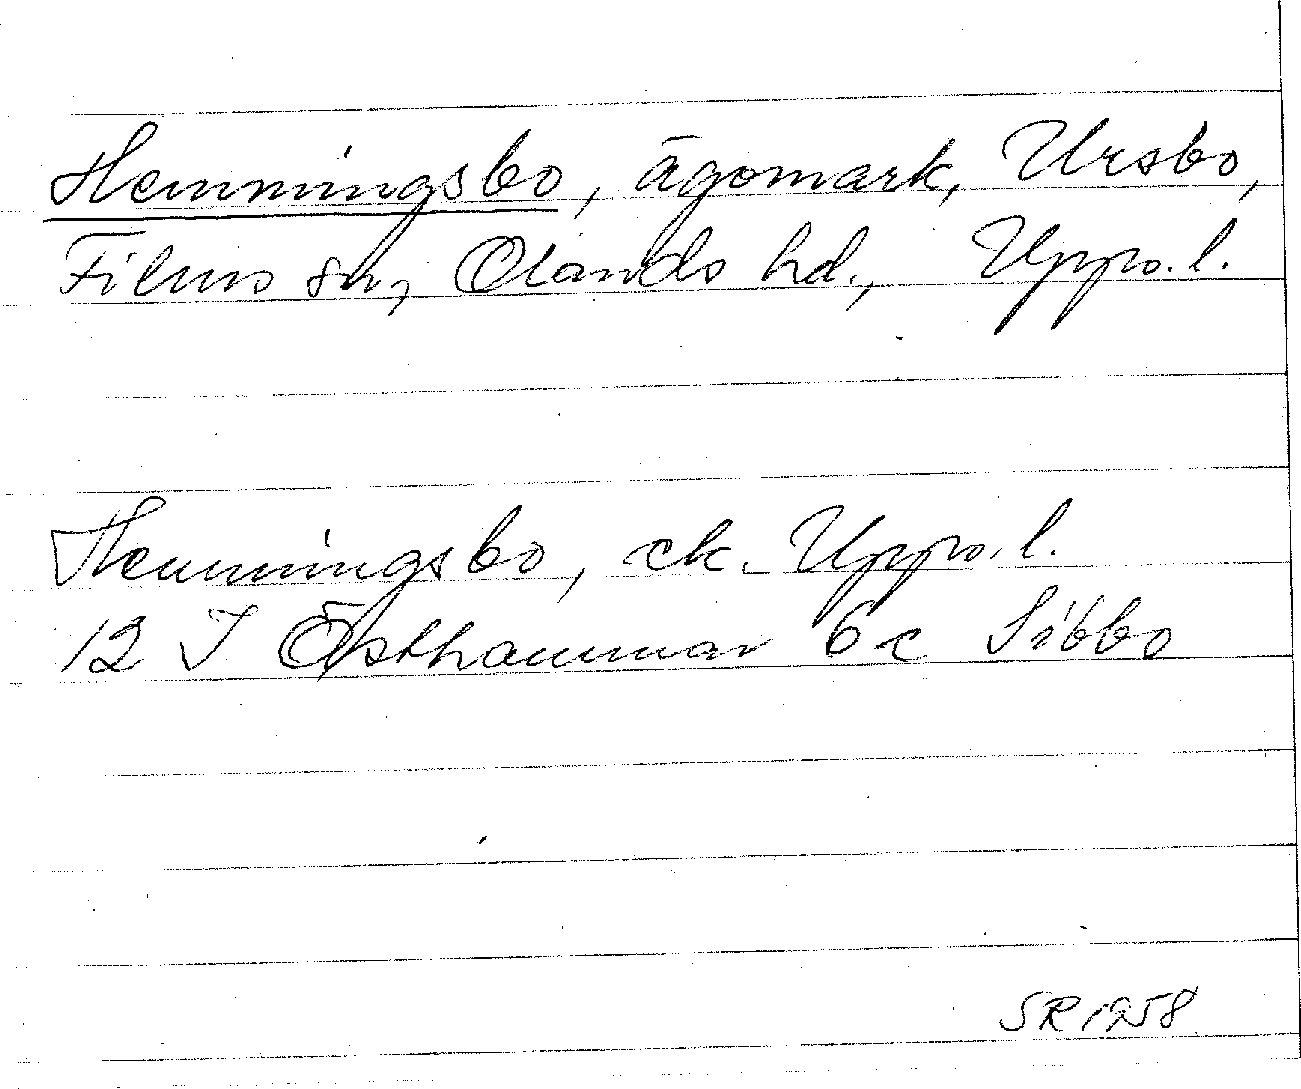 Hemmingsbo, ägomark, Ursbo,
Films sn, Olands hd., Upps. l.
Hemmingsbo, ek. Upps. l.
12 I Östhammar 6 c Sibbo
SR 1958